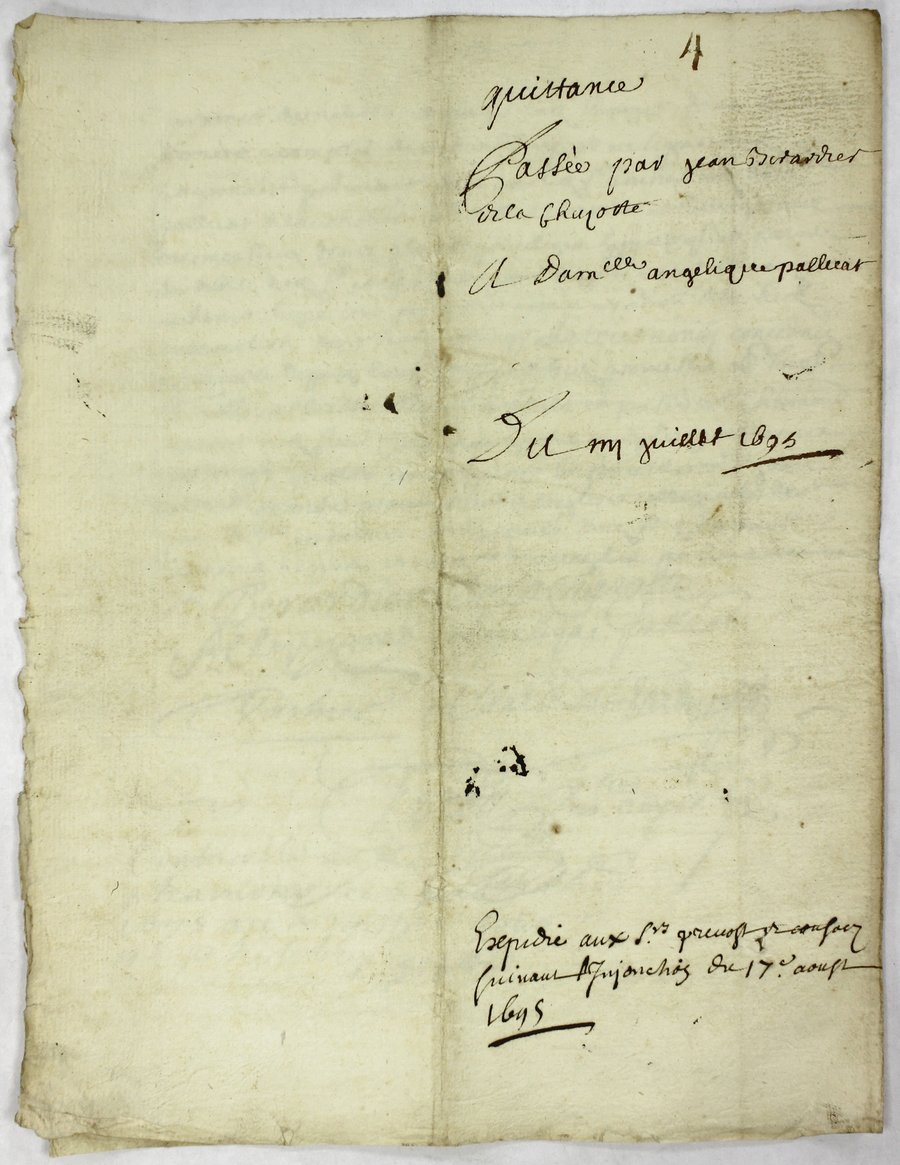 4
quittance
Passée par jean Girardier
de la Chujotte
A Dam.elle angelique pallicat
Du juillet 1695
Expedié aux S.rs prevost et
suivant Injonction du 17.e aoust
1695